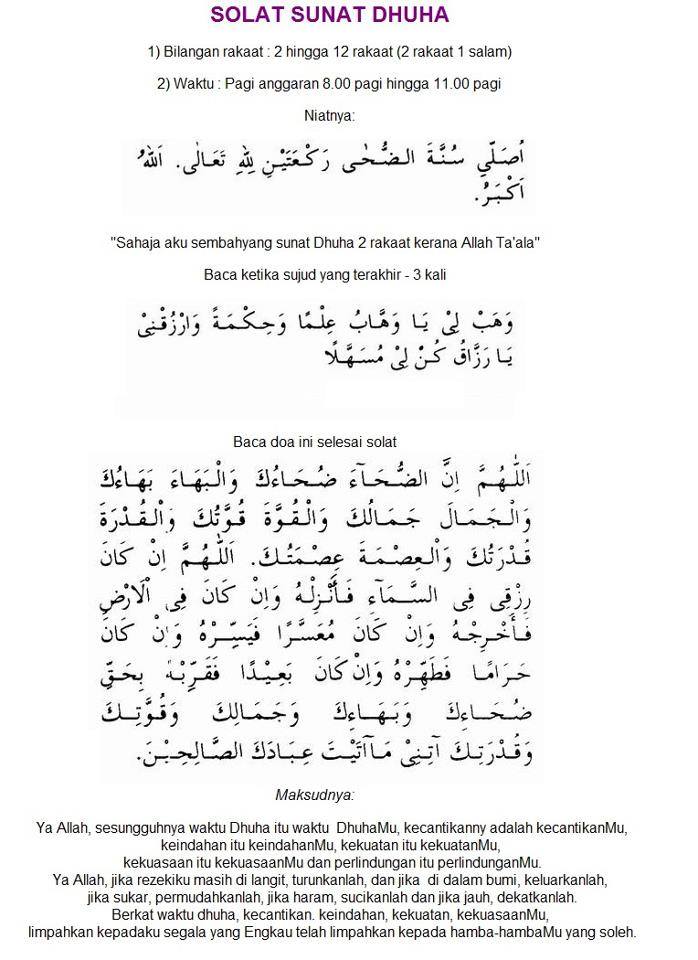 SOLAT SUNAT DHUHA
1) Bilangan rakaat : 2 hingga 12 rakaat (2 rakaat 1 salam)
2) Waktu : Pagi anggaran 8.00 pagi hingga 11.00 pagi
Niatnya:
اُصَلِّي سُنَّةَ الضُّحٰى رَكْعَتَيْنِ لِلّٰهِ تَعَالٰى. اَللهُ
اَكْبَرُ.
"Sahaja aku sembahyang sunat Dhuha 2 rakaat kerana Allah Ta'ala"
Baca ketika sujud yang terakhir - 3 kali
وَهَبْ لِيْ يَا وَهَّابُ عِلْمًا وَحِكْمَةً وَارْزُقْنِيْ
يَا رَزَّاقُ كُنْ لِيْ مُسَهَّلًا
Baca doa ini selesai solat
اَللّٰهُمَّ اِنَّ الضُّحَآءَ ضُحَاءُكَ وَالْبَهَاءَ بَهَاءُكَ
وَالْجَمَالَ جَمَالُكَ وَالْقُوَّةَ قُوَّتُكَ وَالْقُدْرَةَ
قُدْرَتُكَ وَالْعِصْمَةَ عِصْمَتُكَ. اَللّٰهُمَّ اِنْ كَانَ
رِزْقِى فِى السَّمَآءِ فَأَنْزِلْهُ وَاِنْ كَانَ فِى اْلَارْضِ
فَأَخْرِجْهُ وَاِنْ كَانَ مُعَسَّرًا فَيَسِّرْهُ وَاِنْ كَانَ
حَرَامًا فَطَهِّرْهُ وَاِنْ كَانَ بَعِيْدًا فَقَرِّبْهُ بِحَقِّ
ضُحَاءِكَ وَبَهَاءِكَ وَجَمَالِكَ وَقُوَّتِكَ
وَقُدْرَتِكَ آتِنِيْ مَآاَتَيْتَ عِبَادَكَ الصَّالِحِيْنَ.
Maksudnya:
Ya Allah, sesungguhnya waktu Dhuha itu waktu DhuhaMu, kecantikanny adalah kecantikanMu,
keindahan itu keindahanMu, kekuatan itu kekuatanMu,
kekuasaan itu kekuasaanMu dan perlindungan itu perlindunganMu.
Ya Allah, jika rezekiku masih di langit, turunkanlah, dan jika di dalam bumi, keluarkanlah,
jika sukar, permudahkanlah, jika haram, sucikanlah dan jika jauh, dekatkanlah.
Berkat waktu dhuha, kecantikan. keindahan, kekuatan, kekuasaanMu,
limpahkan kepadaku segala yang Engkau telah limpahkan kepada hamba-hambaMu yang soleh.